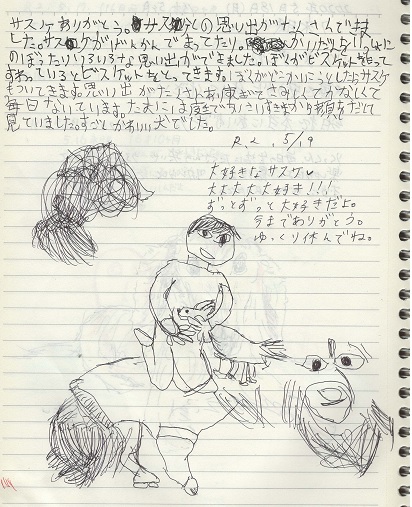 サスケありがとう。サスケとの思い出がたくさんできま
した。サスケがげんかんでまってたり。
のぼったりいろいろな思い出ができました。ぼくがビスケット もって
すわっているとビスケットをとってきます。ぼくがどこかにいこうとしたらサスケ
もついてきます。思い出がたくさんありすぎてさみしくてかなしくて
毎日ないています。たまには
見ていました。すごくかわいい犬でした。
R.2. 5/19
大好きなサスケ♥
大大大大大好き!!!
ずっとずっと大好きだよ。
今までありがとう。
ゆっくり休んでね。